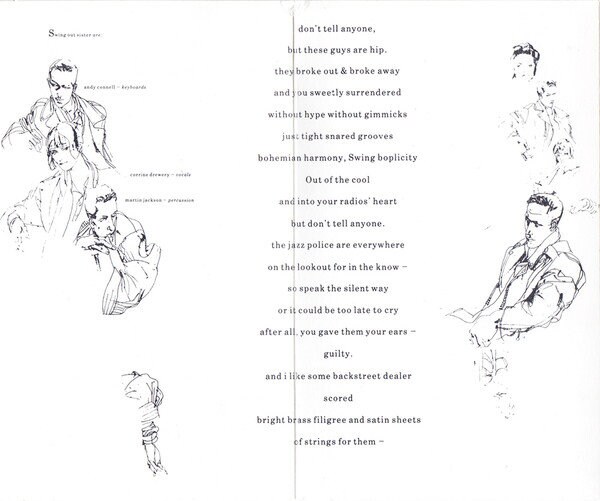 Swing out sister are:
andy connell – keyboards
corrine drewery – vocals
martin jackson – percussion
don't tell anyone,
but these guys are hip.
they broke out & broke away
and you sweetly surrendered
without hype without gimmicks
just tight snared grooves
bohemian harmony, Swing boplicity
Out of the cool
and into your radios' heart
but don't tell anyone.
the jazz police are everywhere
on the lookout for in the know –
so speak the silent way
or it could be too late to cry
after all, you gave them your ears –
guilty.
and i like some backstreet dealer
scored
bright brass filigree and satin sheets
of strings for them –